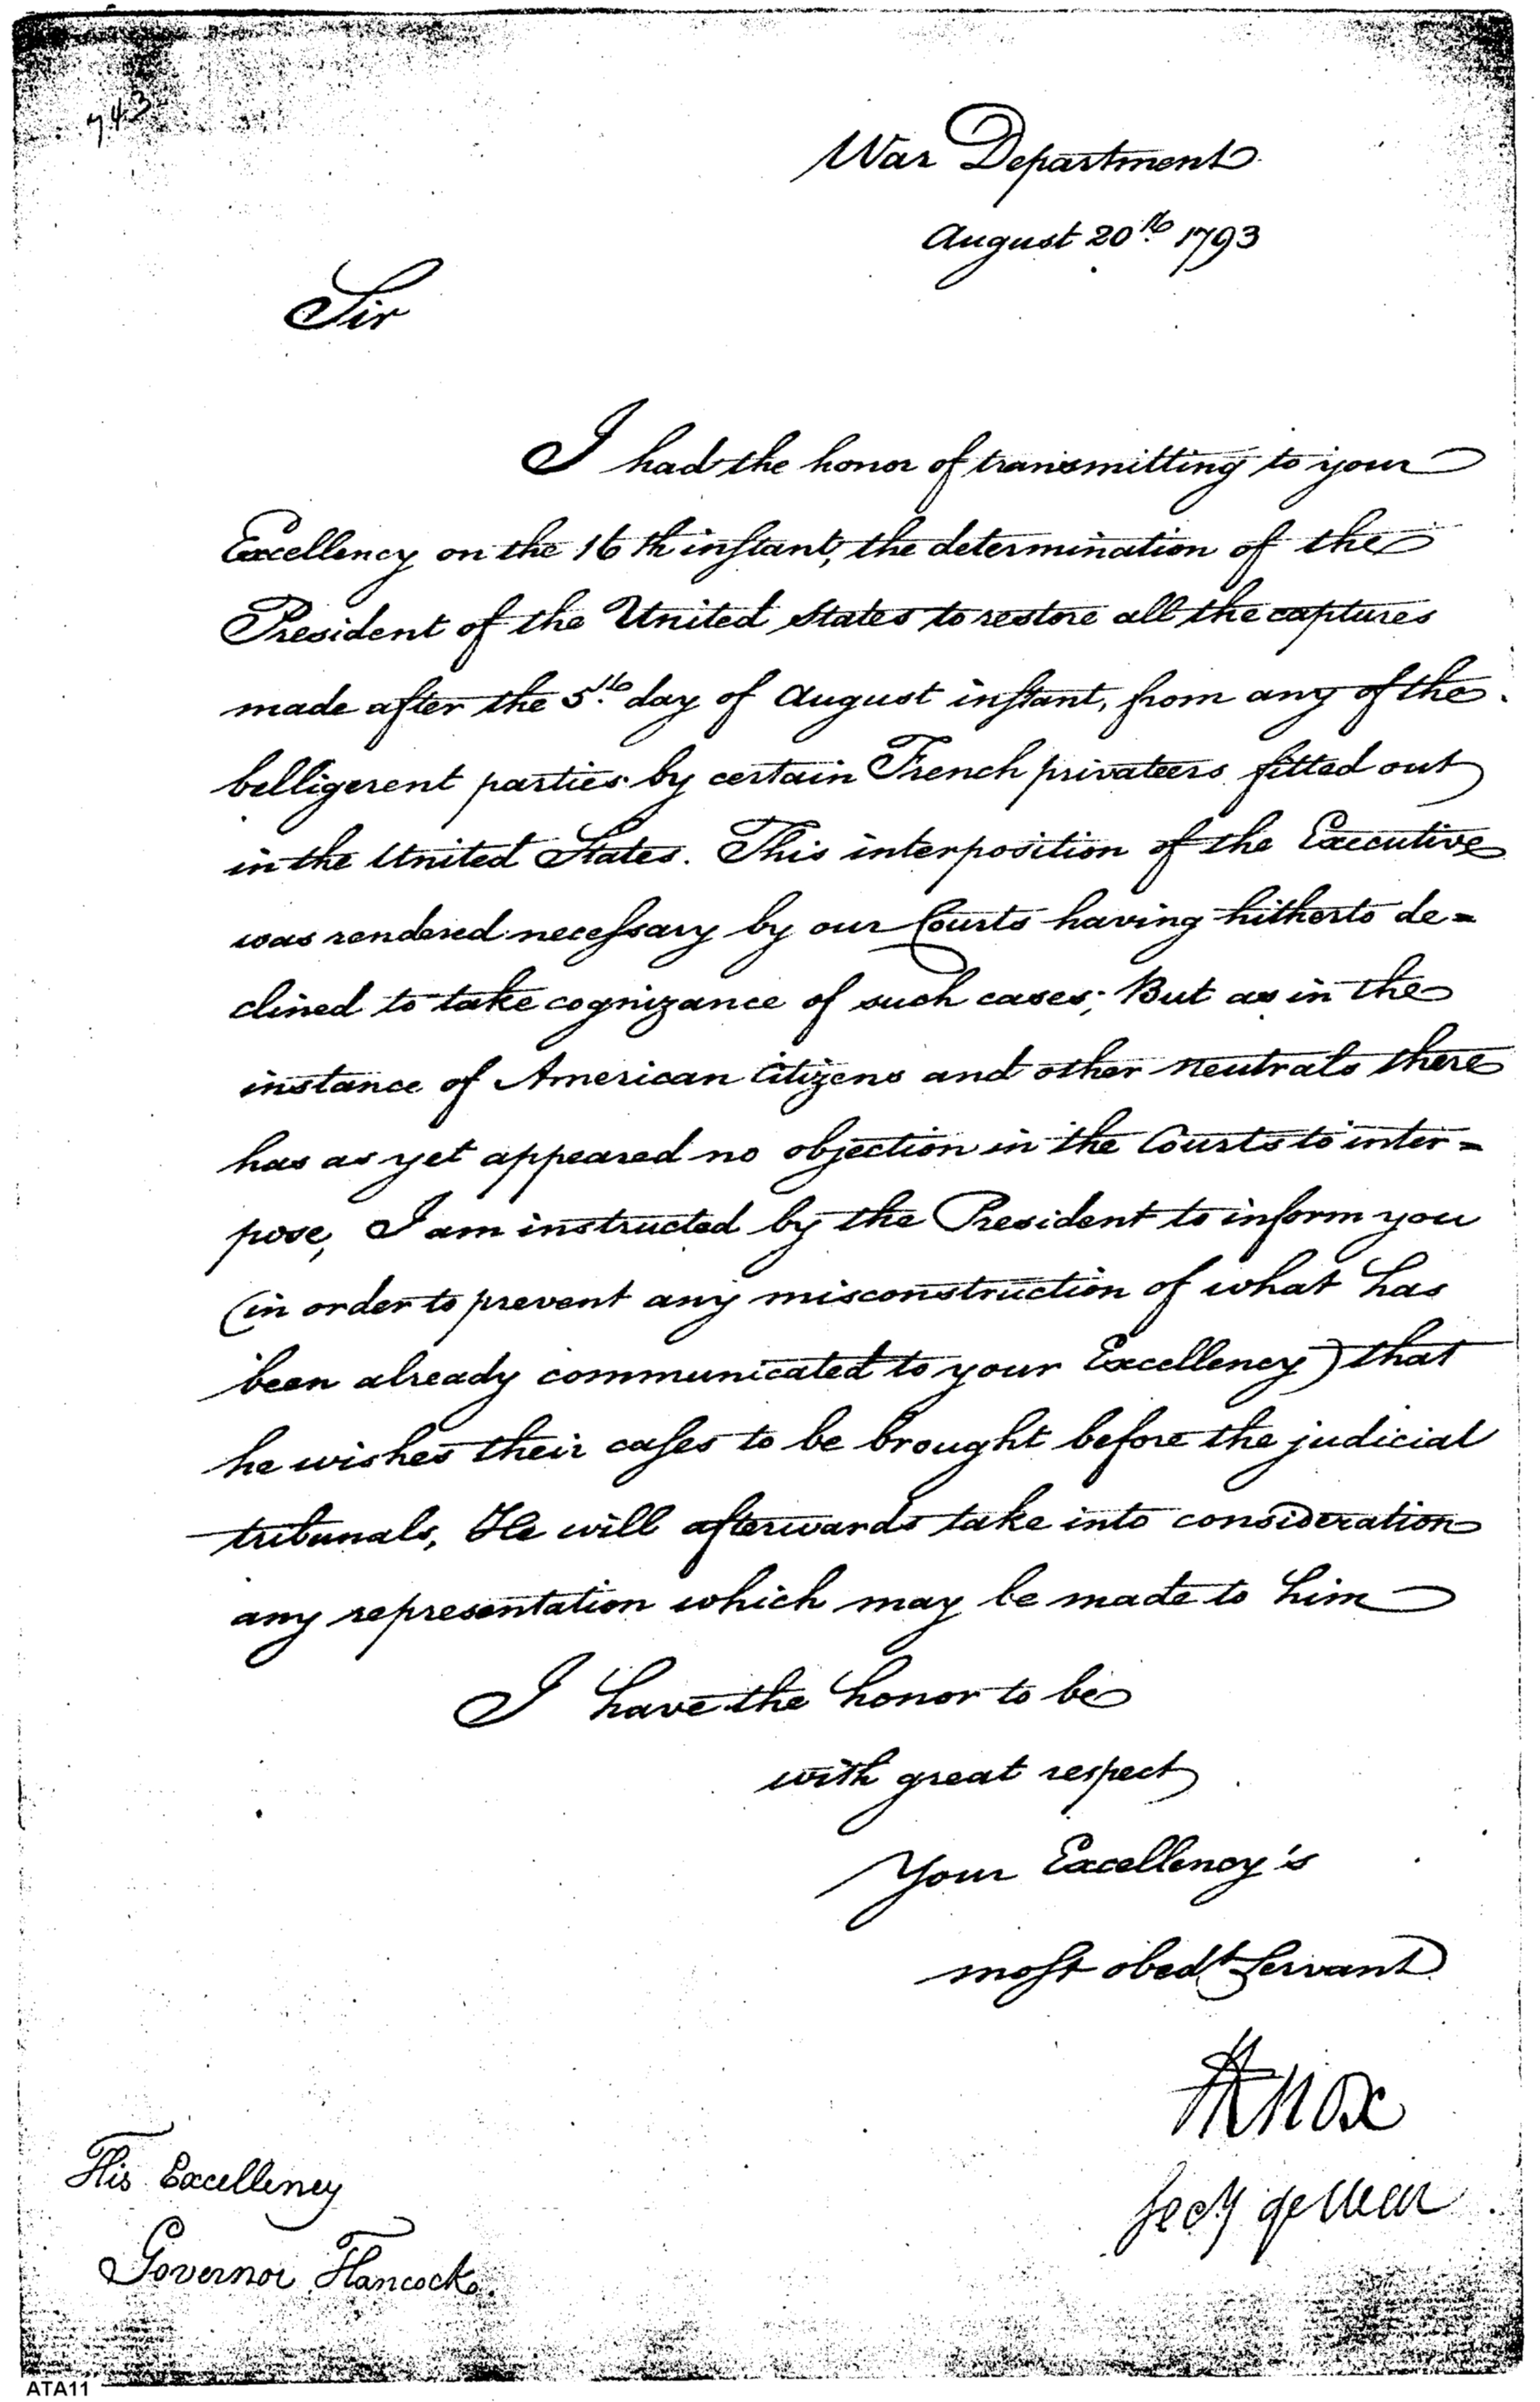 743
War Department
August 20th. 1793
Sir
I had the honor of transmitting to your
Excellency on the 16th instant, the determination of the
President of the United States to restore all the captures
made after the 5th. day of August instant, from any of the
belligerent parties by certain French privateers fitted out
in the United States. This interposition of the Executive
was rendered necessary by our Courts having hitherto de=
clined to take cognizance of such cases; But as in the
instance of American Citizens and other Neutrals there
has as yet appeared no objection in the Courts to inter=
pose, I am instructed by the President to inform you
(in order to prevent any misconstruction of what has
been already communicated to your Excellency) that
he wishes their cases to be brought before the judicial
tribunals, He will afterwards take into consideration
any representation which may be made to him
I have the honor to be
with great respect
Your Excellency's
most obedt Servant
HKnox
Secy of War
His Excellency
Governor Hancock.
ATA11